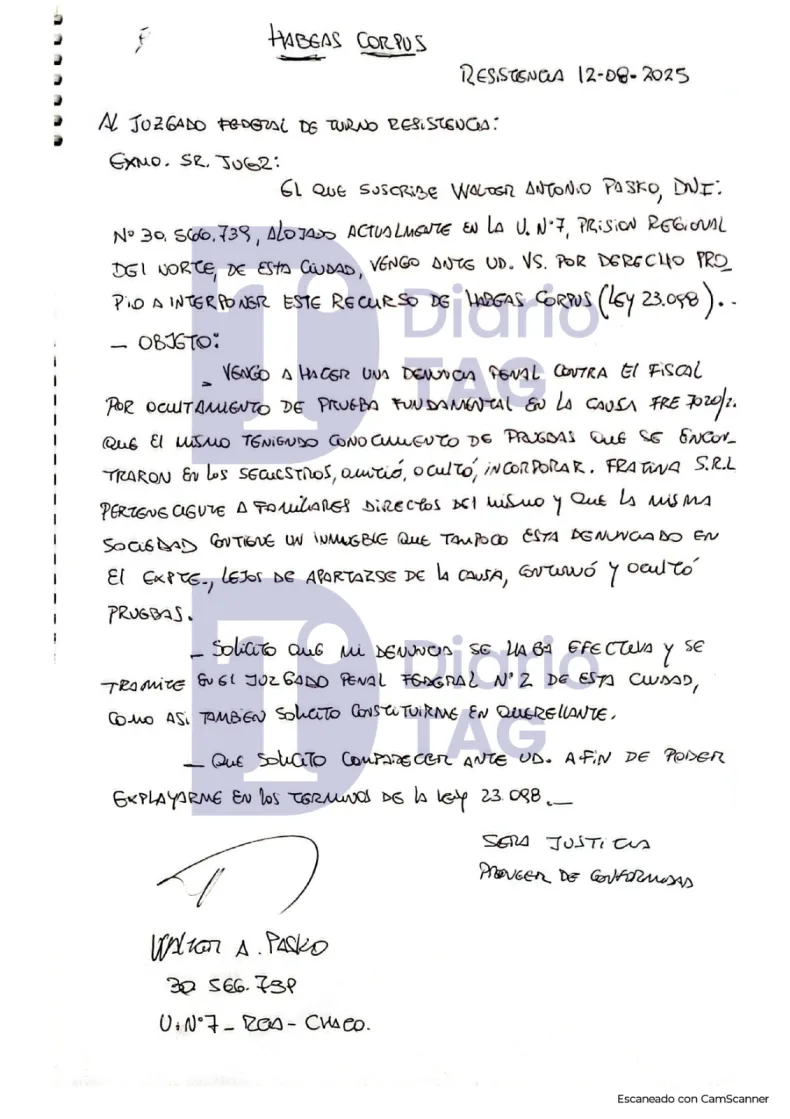 HABEAS CORPUS
RESISTENCIA 12-08-2025
AL JUZGADO FEDERAL DE TURNO RESISTENCIA:
EXMO. SR. JUEZ:
EL QUE SUSCRIBE WALTER ANTONIO PASKO, DNI:
Nº 30.566.739, ALOJADO ACTUALMENTE EN LA U. Nº7, PRISION REGIONAL
DEL NORTE, DE ESTA CIUDAD, VENGO ANTE UD. VS. POR DERECHO PRO_
PIO A INTERPONER ESTE RECURSO DE HABEAS CORPUS (LEY 23.098)..
Diario
TAG
— OBJETO:
_ VENGO A HACER UNA DENUNCIA PENAL CONTRA El FISCAL
POR OCULTAMIENTO DE PRUEBA FUNDAMENTAL EN LA CAUSA FRE 7020/2.
QUE El MISMO TENIENDO CONOCIMIENTO DE PRUEBAS QUE SE ENCON_
TRARON EN LOS SECUESTROS, OMITIÓ, OCULTÓ, INCORPORAR. FRATINA S.R.L
PERTENECIENTE A FAMILIARES DIRECTOS DEL MISMO Y QUE LA MISMA
SOCIEDAD CONTIENE UN INMUEBLE QUE TAMPOCO ESTA DENUNCIADO EN
El EXPTE., LEJOS DE APARTARSE DE LA CAUSA, CONTINUÓ Y OCULTÓ
PRUEBAS.
_ SOLICITO QUE MI DENUNCIA SE HAGA EFECTIVA Y SE
TRAMITE EN El JUZGADO PENAL FEDERAL Nº2 DE ESTA CIUDAD,
COMO ASI TAMBIEN SOLICITO CONSTITUIRME EN QUERELLANTE.
Diario
TAG
— QUE SOLICITO COMPARECER ANTE UD. A FIN DE PODER
EXPLAYARME EN LOS TERMINOS DE LA LEY 23.098._
SERA JUSTICIA
PROVEER DE CONFORMIDAD
WALTER A. PASKO
30 566.739
U.Nº7 - RCIA - CHACO.
Escaneado con CamScanner